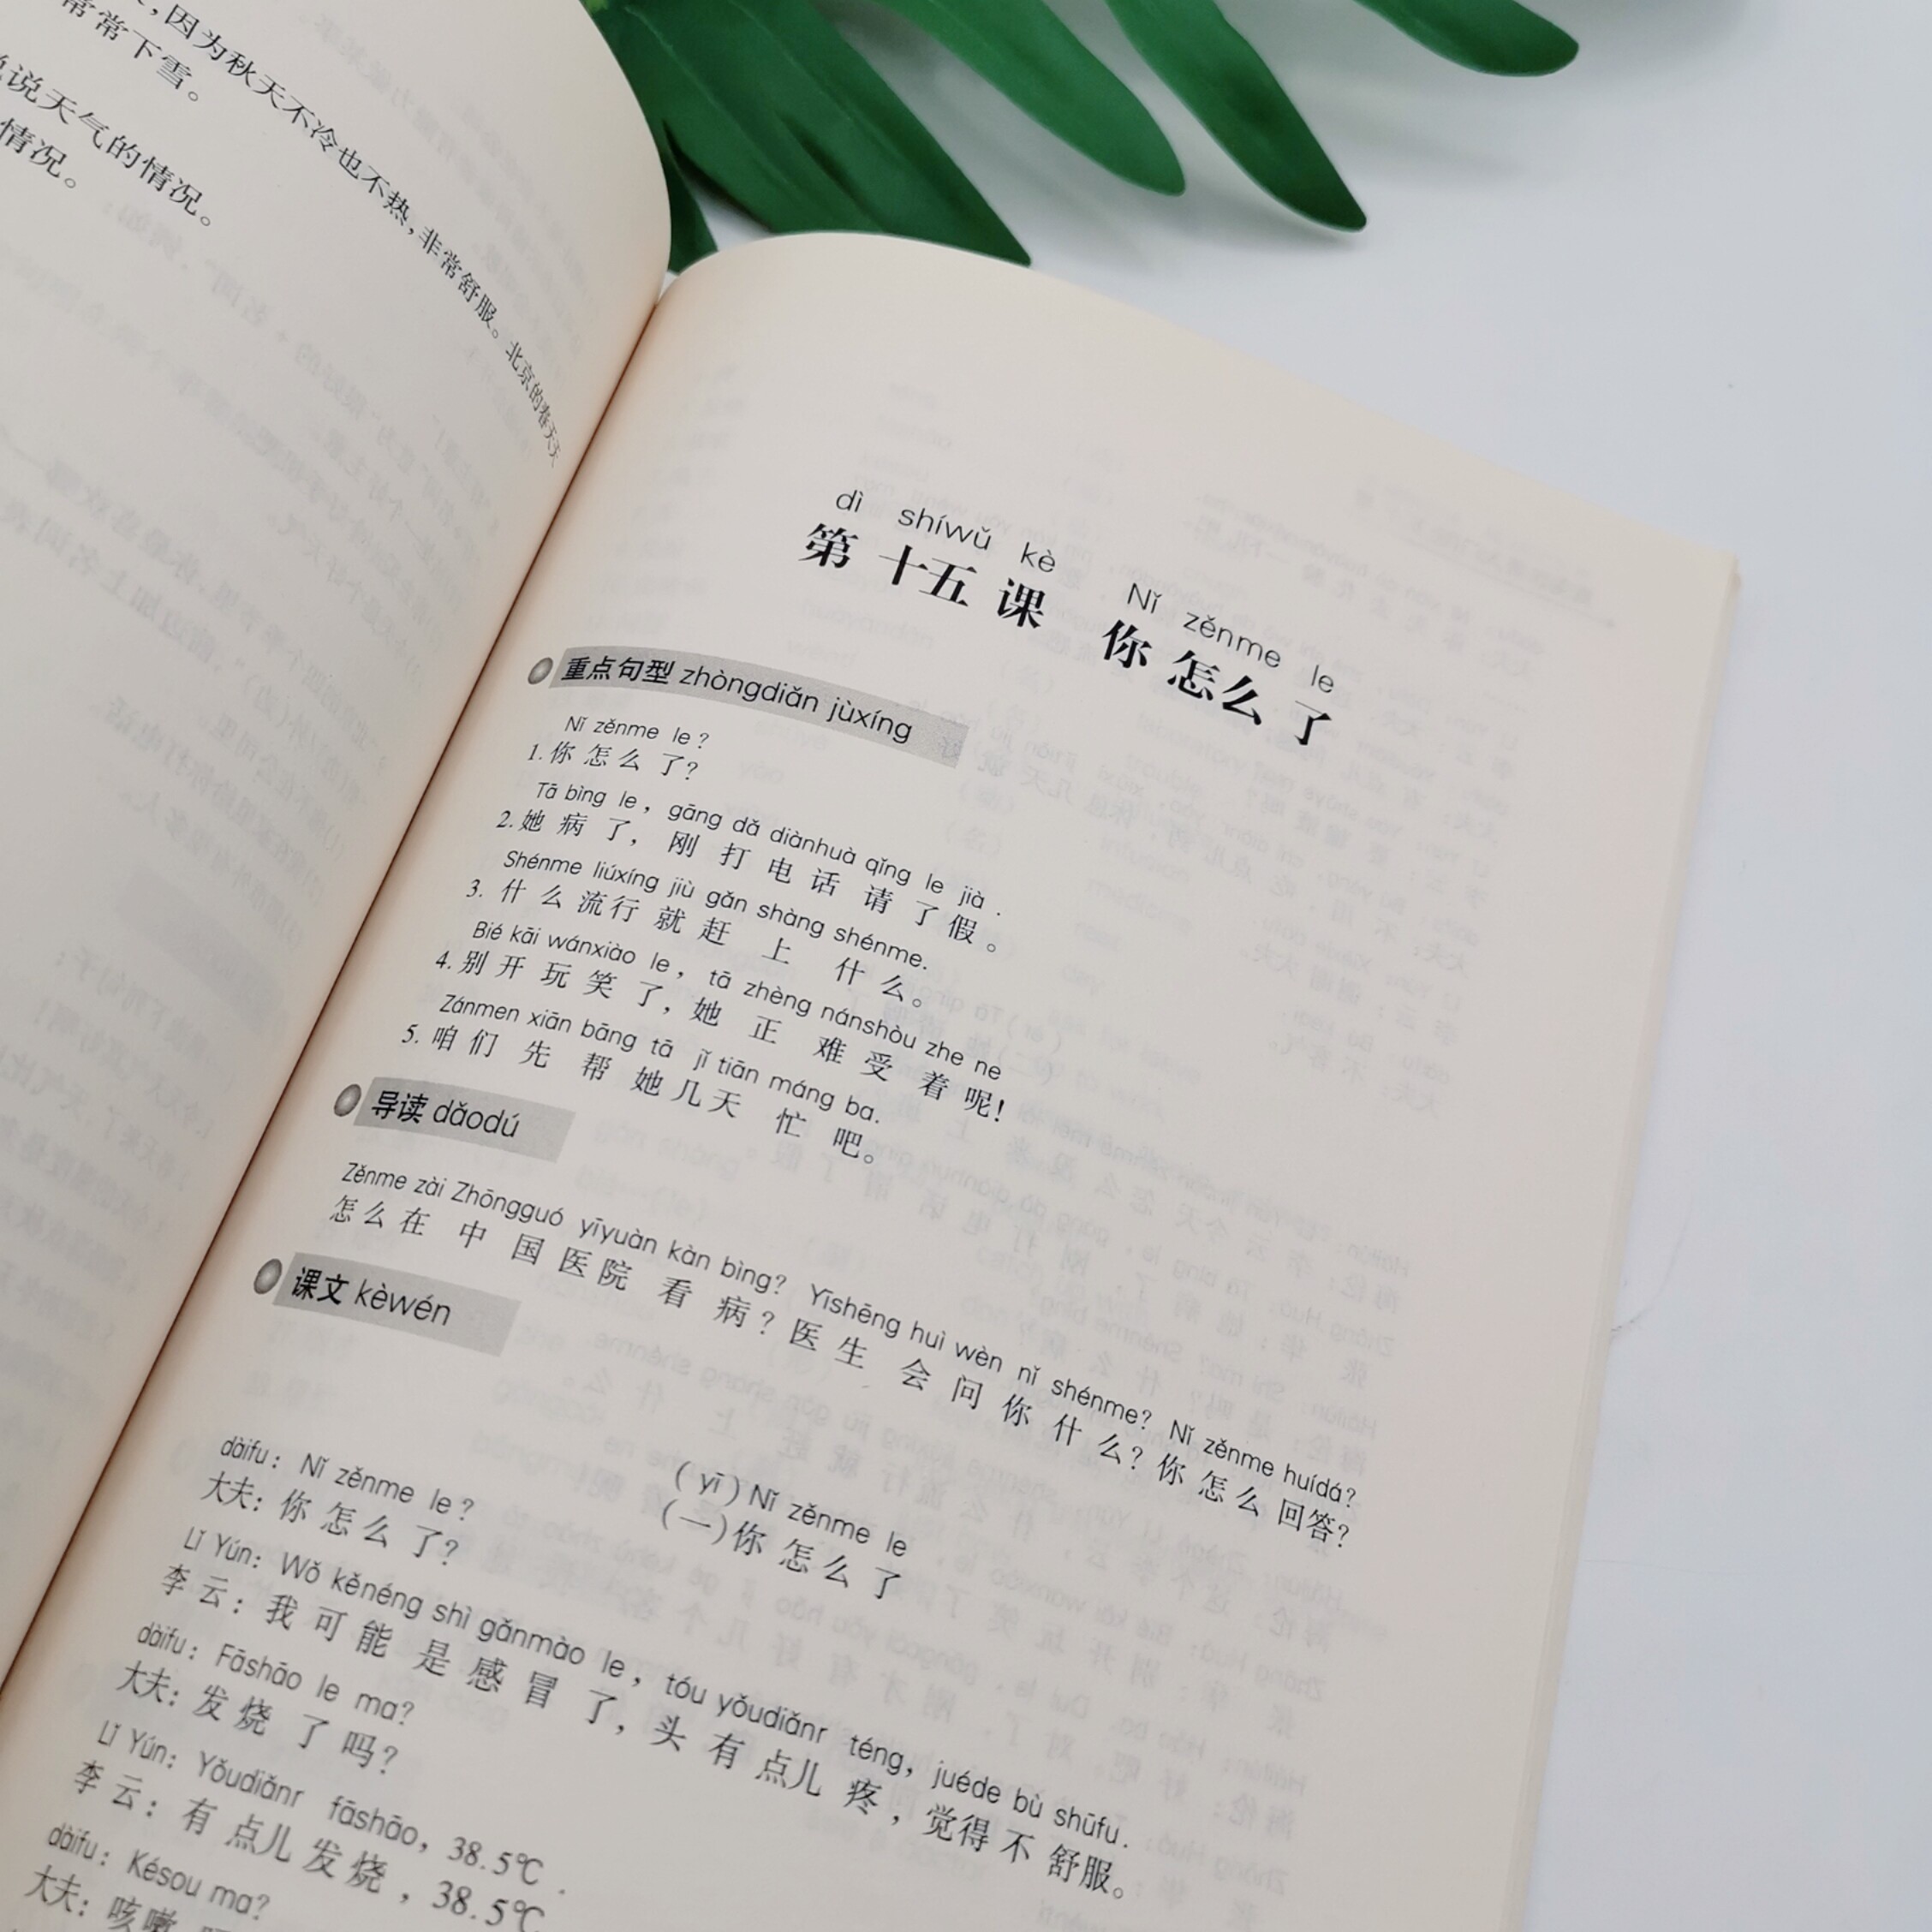 ，因为秋天不冷也不热，非常舒服。北京的春天
常常下雪。
说说天气的情况。
情况。
dì shíwǔ kè Nǐ zěnme le
第十五课 你怎么了
重点句型 zhòngdiǎn jùxíng
Nǐ zěnme le?
1.你怎么了?
Tā bìng le, gāng dǎ diànhuà qǐng le jià.
2.她病了，刚打电话请了假。
Shénme liúxíng jiù gǎn shàng shénme.
3.什么流行就赶上什么。
Bié kāi wánxiào le, tā zhèng nánshòu zhe ne
4.别开玩笑了，她正难受着呢!
Zánmen xiān bāng tā jǐ tiān máng ba.
5.咱们先帮她几天忙吧。
导读 dǎodú
Zěnme zài Zhōngguó yīyuàn kàn bìng? Yīshēng huì wèn nǐ shénme? Nǐ zěnme huídá?
怎么在中国医院看病?医生会问你什么?你怎么回答?
课文 kèwén
(yī) Nǐ zěnme le
(一)你怎么了
dàifu: Nǐ zěnme le?
大夫:你怎么了?
Lǐ Yún: Wǒ kěnéng shì gǎnmào le, tóu yǒudiǎnr téng, juéde bù shūfu.
李云:我可能是感冒了，头有点儿疼，觉得不舒服。
dàifu: Fāshāo le ma?
大夫:发烧了吗?
Lǐ Yún: Yǒudiǎnr fāshāo, 38.5℃.
李云:有点儿发烧，38.5℃
dàifu: Késou ma?
大夫:咳嗽